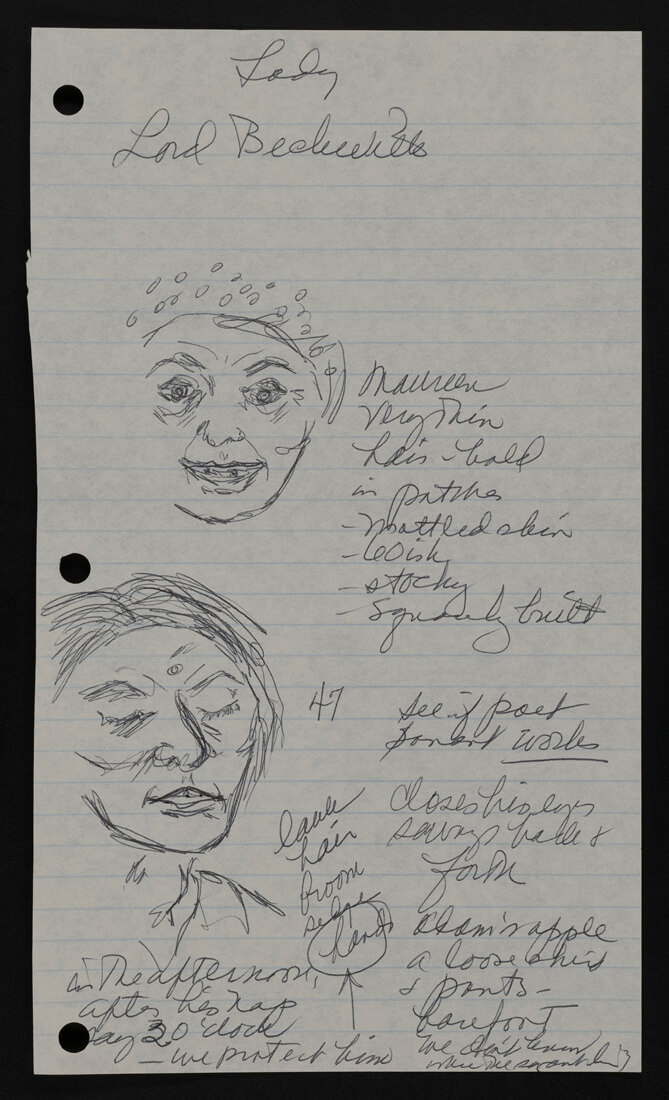 Lady
Lord Beckwith
Maureen
Very Thin
hair - bald
in patches
- Mottled skin
- 60ish
- stocky
Squarely built
47
see if poet
works
closes his eyes
sways back &
forth
hair
broom
hands
adam's apple
a loose shirt
& pants -
barefoot
we don't know
in The afternoon,
after his nap
say 3 O'clock
- we protect him